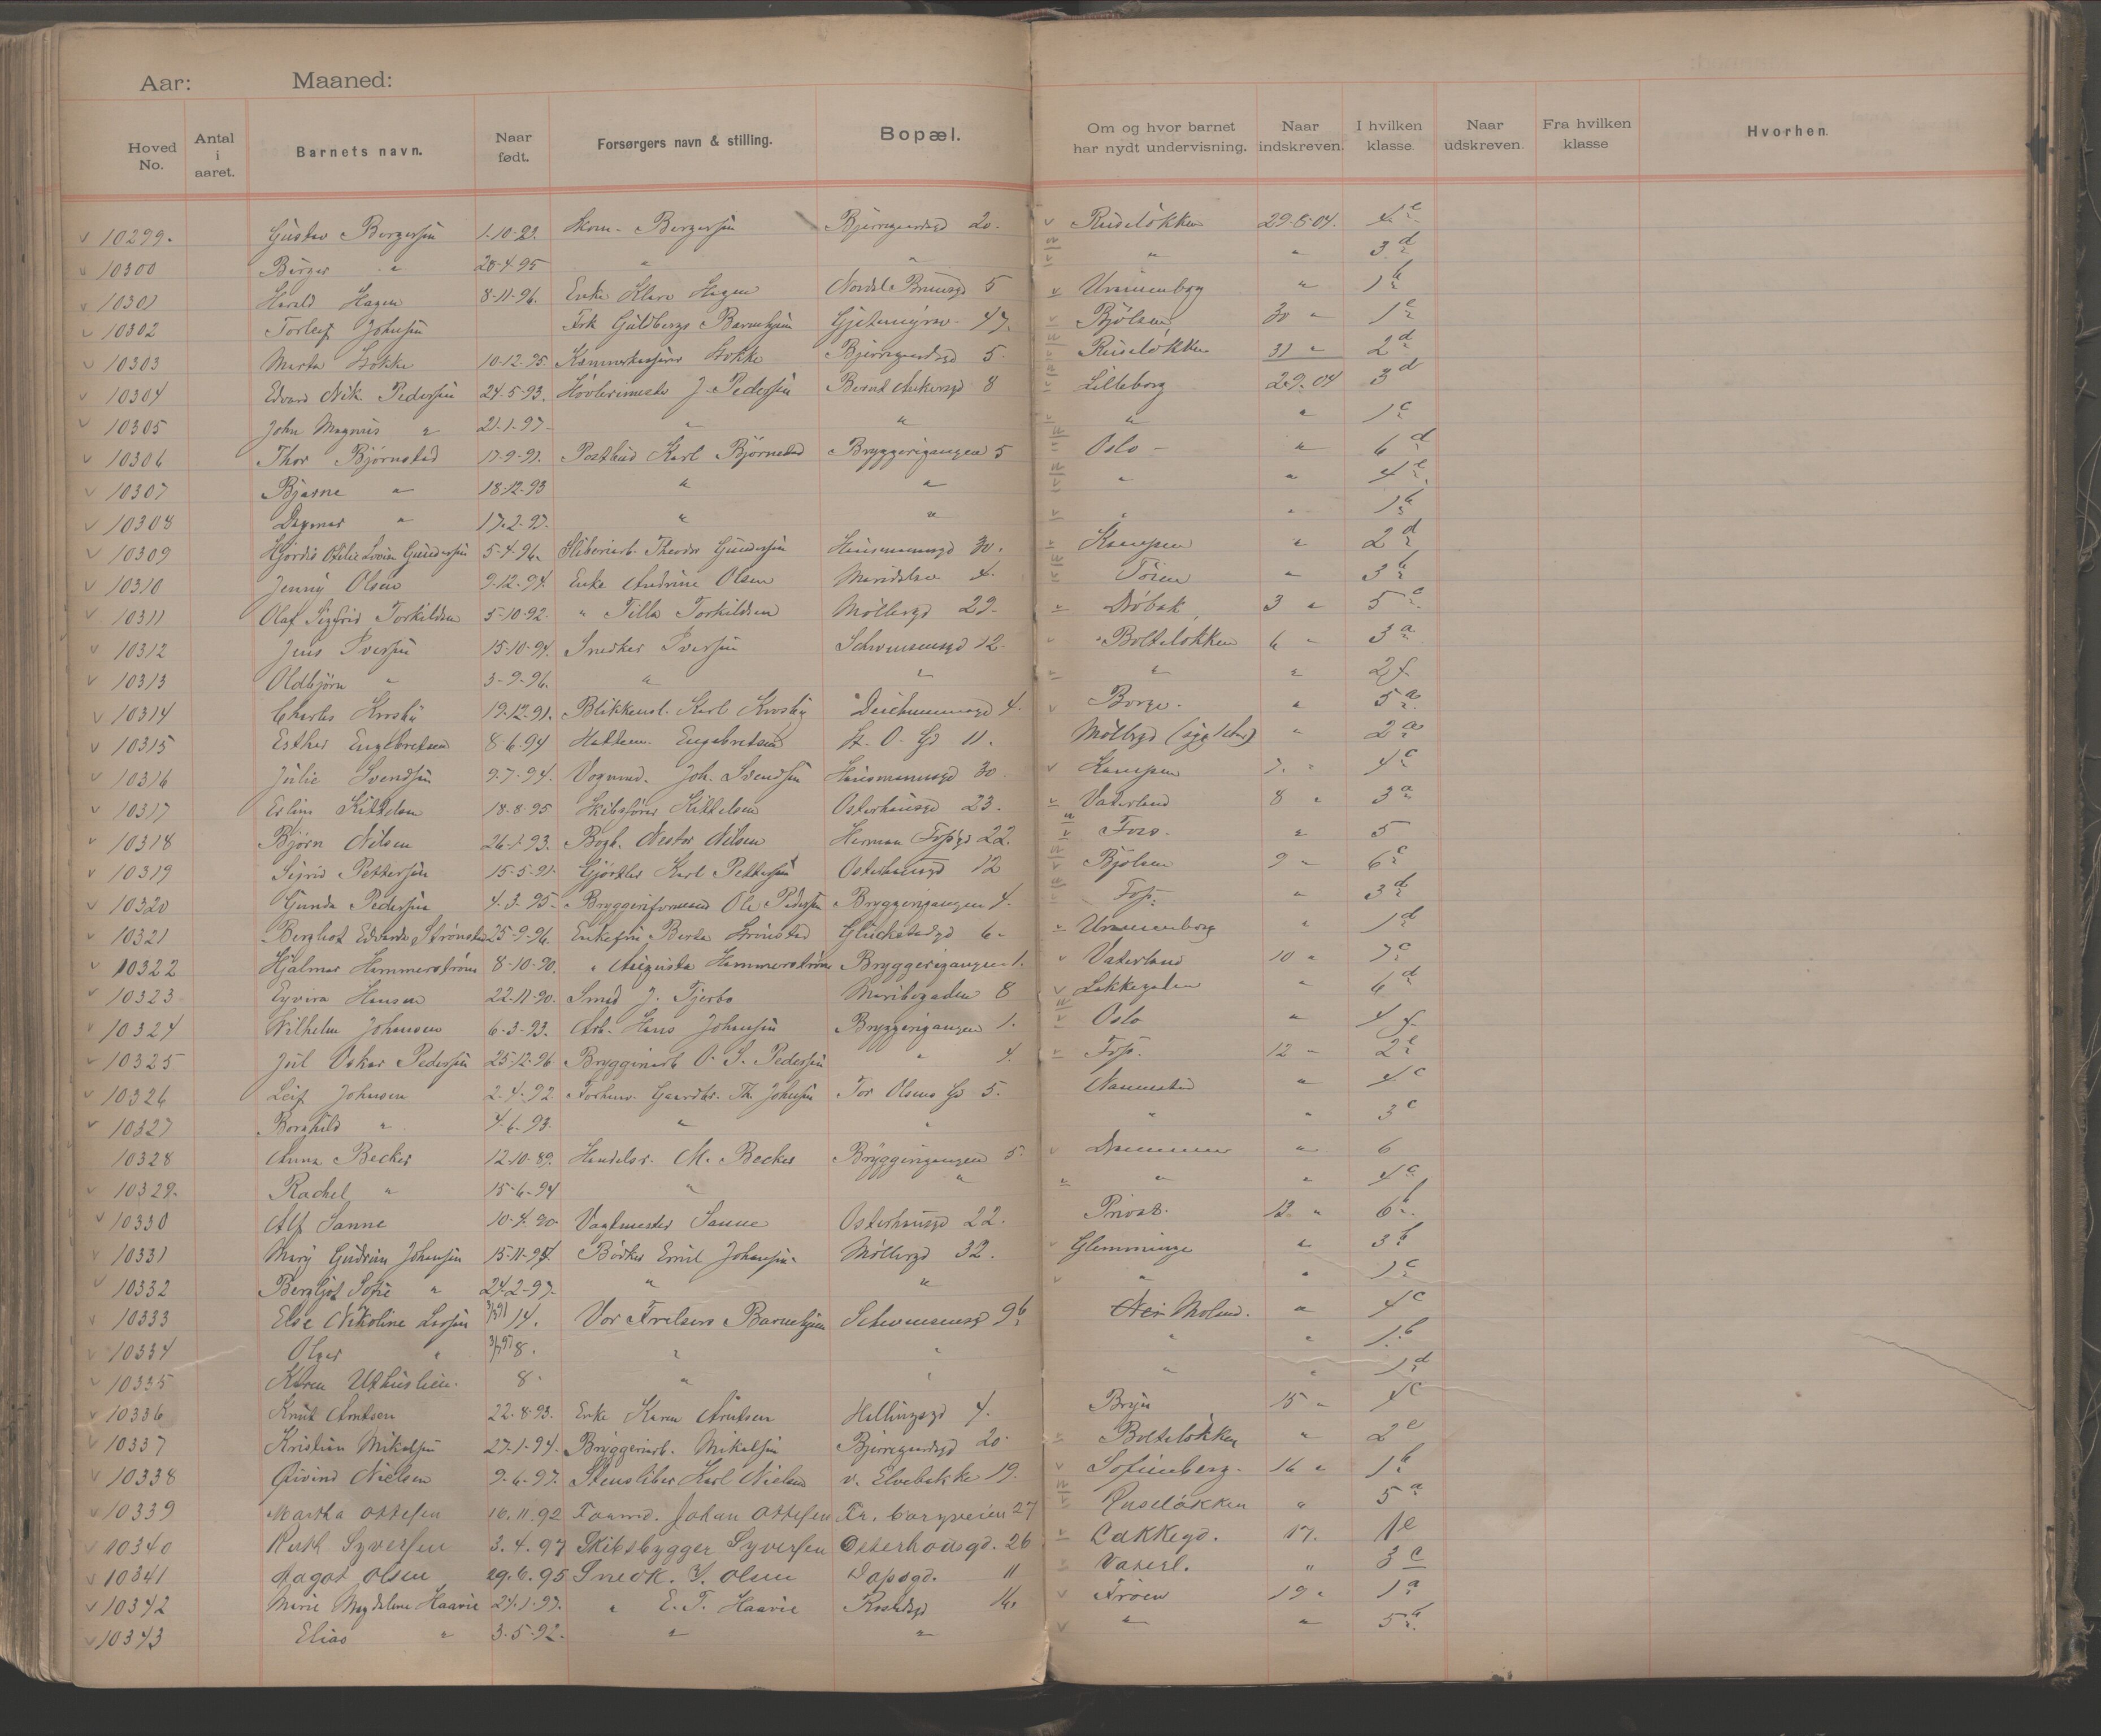 Aar: Maaned:
Hoved No. Antal i aaret. Barnets navn. Naar født. Forsørgers navn & stilling. Bopæl. Om og hvor barnet har nydt undervisning. Naar indskreven. I hvilken klasse. Naar udskreven. Fra hvilken klasse Hvorhen.
10299. Gustav Bergersen 1-10-93. Skom. Bergersen Bjerregaardsgd 20. Ruseløkken 29-8-04. 4e
10300 Birger " 28-4-95 " " " " 3d
10301 Harald Hagen 8-11-96. Enke Klara Hagen Nordal Brunsgd 5 Uranienborg " 1b
10302 Torleif Johnsen Frk Guldbergs Barnehjem Gjetemyrsv. 47. Bjølsen 30 " 1e
10303 Marta Stokke 10-12-95 Stokke Bjerregaardsgd 5. Ruseløkken 31 " 2d
10304 Edvard Nik. Pedersen 24-5-93. Høvlerimester J. Pedersen Bernt Ankersgd 8 Lilleborg 2-9-04 3d
10305 John Magnus " 21-1-97. " " " " 1c
10306 Thor Bjørnstad 17-9-91. Postbud Karl Bjørnstad Bryggerigangen 5 Oslo - " 6d
10307 Bjarne " 18-12-93 " " " " 4e
10308 Dagmar " 17-2-97. " " " " 1b
10309 Hjørdis Otilie Lovise Gundersen 5-4-96. Sliberiarb. Theodor Gundersen Hausmannsgd 30. Kampen " 2d
10310 Jenny Olsen 9-12-94. Enke Andrine Olsen Maridalsv 4. Tøien " 3b
10311 Olaf Sigfrid Torkildsen 5-10-92. " Tilla Torkildsen Møllergd 29. Drøbak 3 " 5c
10312 Jens Iversen 15-10-94. Snedker Iversen Schwensensgd 12. Bolteløkken 6 " 3a
10313 Oldbjørn " 3-9-96. " " " " 2f.
10314 Charles Krosby 19-12-91. Blikkensl. Karl Krosby Deichmannsgd 4. Borge. " 5a
10315 Esther Engebretsen 8-6-94 Hattem. Engebretsen St. O. Gd 11. Møllergd " 2a
10316 Julie Svendsen 9-7-94. Vognmd. Joh. Svendsen Hausmannsgd 30. Kampen 7. " 4c
10317 Erling Kittelsen 18-8-95 Skibsfører Kittelsen Osterhausgd 23. Vaterland 8 " 3a
10318 Bjørn Nilsen 26-1-93. Bogh. Nestor Nilsen Herman Fossgd 22. Foss. " 5
10319 Sigrid Pettersen 15-5-91. Gjørtler Karl Pettersen Osterhausgd 12 Bjølsen 9 " 6c
10320 Gunda Pedersen 4-3-95. Bryggeriformand Ole Pedersen Bryggerigangen 4. Foss. " 3d
10321 Bergliot Edvarda Strønstad 25-9-96. Enkefru Berta Strønstad Glückstadsgd 6. Uranienborg " 1d
10322 Hjalmar Hammerstrøm 8-10-90. " Augusta Hammerstrøm Bryggerigangen 1. Vaterland 10 " 7c
10323 Hansen 22-11-90. Smed J. Fjerbo Maribogaden 8 Lakkegaden " 6d
10324 Vilhelm Johansen 6-3-93. Arb. Hans Johansen Bryggerigangen 1. Oslo " 4f.
10325 Jul Oskar Pedersen 25-12-96 Bryggeriarb O. S. Pedersen " 4. Foss. 12 " 2e
10326 Leif Johnsen 2-4-92. Gaardbr. Th. Johnsen Tor Olsens Gd 5. Nannestad " 4c
10327 Borghild " 4-6-93. " " " " 3c
10328 Anna Becker 12-10-89. Handelsr. M. Becker Bryggerigangen 5. Drammen " 6
10329. Rachel " 15-6-94 " " " " 4c
10330 Alf Sanne 10-4-90. Vagtmester Sanne Osterhausgd 22. Privat. 13 " 6b
10331 Mary Gudrun Johansen 15-11-94. Bødker Emil Johansen. Møllergd 32. Glemminge " 3b
10332 Bergljot Sofie " 24-2-97. " " " " 1c
10333 Else Nikoline Larsen 14. Vor Frelsers Barnehjem Schwensensgd 9b Moland. " 4c
10334 Olger " 8. " " " " 1b
10335 Karen Uthuslien. 8. " " " " 1d
10336 Knut Arntsen 22-8-93. Enke Karen Arntsen Hallingsgd 4. Bryn 15 " 4c
10337 Kristian Mikalsen 27-1-94. Bryggeriarb. Mikalsen Bjerregaardsgd 20 Bolteløkken " 2e
10338 Øivind Nielsen 9-6-97. Stensliber Karl Nielsen v. Elvebakke 19. Sofienberg. 16 " 1b
10339 Martha Ottesen 16.11.92 Formd. Johan Ottesen Fr. borgveien 27 Ruseløkken " 5a
10340 Ruth Syversen 3.4.97 Skibsbygger Syversen Osterhausgd. 26 Lakkegd. 17. 1e
10341 Aagot Olsen 29.6.95 Snedk. Y. Olsen Dapsgd. 11 Vaterl. " 3c
10342 Marie Magdalene Haavie 24.1.97. " E. T. Haavie Rostedsgd 16. Frøen 19 " 1a
10343 Elias " 3-5-92. " " " " 5b